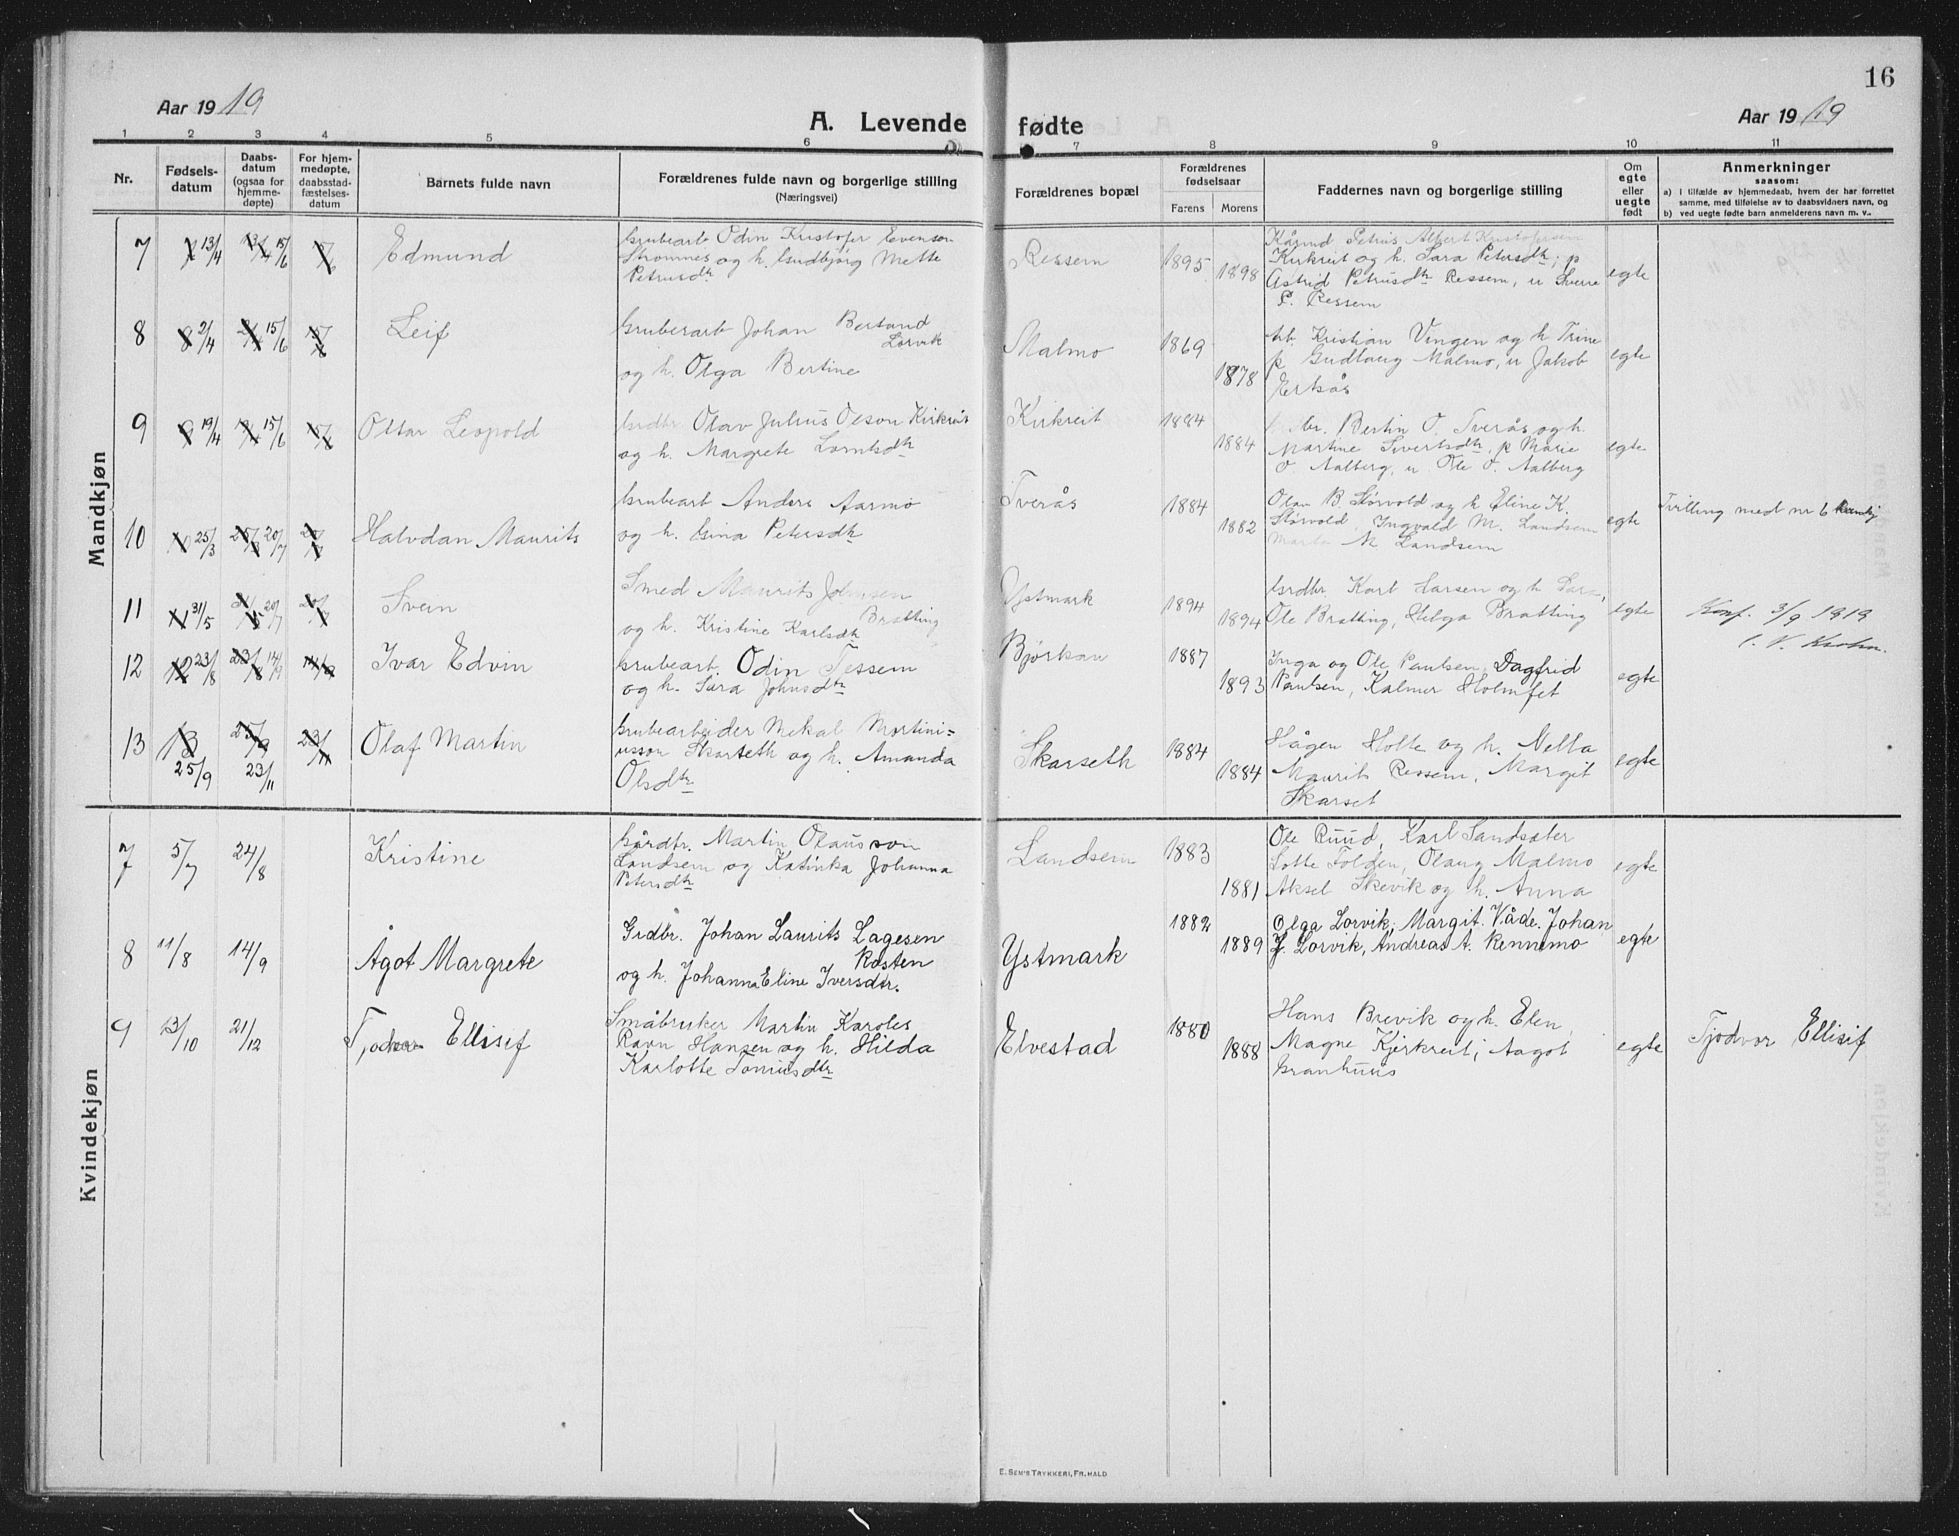 16
Aar 1919
A. Levende fødte
Aar 1919
1 2 3 4 5 6 7 8 9 10 11
Nr.
Fødsels-
datum
Daabs-
datum
(ogsaa for
hjemme-
døpte)
For hjem-
medøpte,
daabsstad-
fæstelses-
datum
Barnets fulde navn
Forældrenes fulde navn og borgerlige stilling
(Næringsvei)
Forældrenes bopæl
Forældrenes
fødselsaar
Farens Morens
Faddernes navn og borgerlige stilling
Om
egte
eller
uegte
født
Anmerkninger
saasom:
a) I tilfælde av hjemmedaab, hvem der har forrettet
samme, med tilføielse av to daabsvidners navn, og
b) ved uegte fødte barn anmelderens navn m. v..
Mandkjøn
7 13/4 15/6 Edmund
Grubearb Odin Kristofer Evensen
Strømnes og h. Gudbjørg Mette
Petrusdtr
Ressem 1895 1898
Petrus Albert Kristofersen
Kirkreit og h. Sara Petersdtr; p
Astrid Petrusdtr Ressem, u Sverre
P. Ressem
egte
8 2/4 15/6 Leif
Gruberarb Johan Bertand
Lorvik
og h. Olga Bertine
Malmo 1869 1878
Arb Kristian Vingen og h Trine
p Gudlaug Malmo, u Jakob
egte
9 19/4 15/6 Ottar Leopold
Grdbr Olav Julius Olson Kirkreit
og h. Margrete Lorntsdtr
Kirkreit 1884 1884
br. Bertin O. Tverås og h.
Martine Sivertsdtr, p Marie
O. Aalberg, u. Ole O. Aalberg
egte
10 25/3 20/7 Halvdan Maurits
Grubearb Anders Aarmo
og h. Gina Petersdtr
Tverås 1884 1882
Olav B. Størvold og h Eline K.
Størvold, Ingvald M. Landsem
Marta M Landsem
egte
Tvilling med nr 6
11 31/5 20/7 Svein
Smed Maurits Johnsen
Bratting
og h. Kristine Karlsdtr
Ystmark 1894 1894
Grdbr Karl Larsen og h Sara,
Ole Bratting, Helga Bratting
egte
Konf. 3/9 1919
12 23/8 14/9 Ivar Edvin
Grubearb. Odin Tessem
og h. Sara Johnsdtr
Bjørkan 1887 1893
Inga og Ole Paulsen, Dagfrid
Paulsen, Kalmer Holmset
egte
13 25/9 23/11 Olaf Martin
Grubearbeider Mekal Martini=
usson Skarseth og h. Amanda
Olsdtr
Skarseth 1884 1884
Hågen Holte og h. Nella
Maurits Ressem, Margit
Skarset
egte
Kvindekjøn
7 5/7 24/8 Kristine
Gårdbr. Martin Olausson
Landsem og Katinka Johanna
Petersdtr
Landsem 1883 1881
Ole Ruud, Karl Sandsæter
Lotte Folden, Olaug Malmo
Aksel Skevik og h. Anna
egte
8 11/8 14/9 Ågot Margrete
Grdbr. Johan Laurits Lagesen
Rosten
og h. Johanna Eline Iversdtr.
Ystmark 1882 1889
Olga Lorvik, Margit Våde. Johan
J. Lorvik, Andreas A. Rennemo
egte
9 13/10 21/12 Ellisif
Småbruker Martin Karoles
Ravn Hansen og h. Hilda
Karlotte Toniusdtr
Elvestad 1880 1888
Hans Brevik og h. Elen,
Magne Kjerkreit; Aagot
Granhuus
egte
Tjodvor Ellisif
E. SEM'S TRYKKERI, FR.HALD